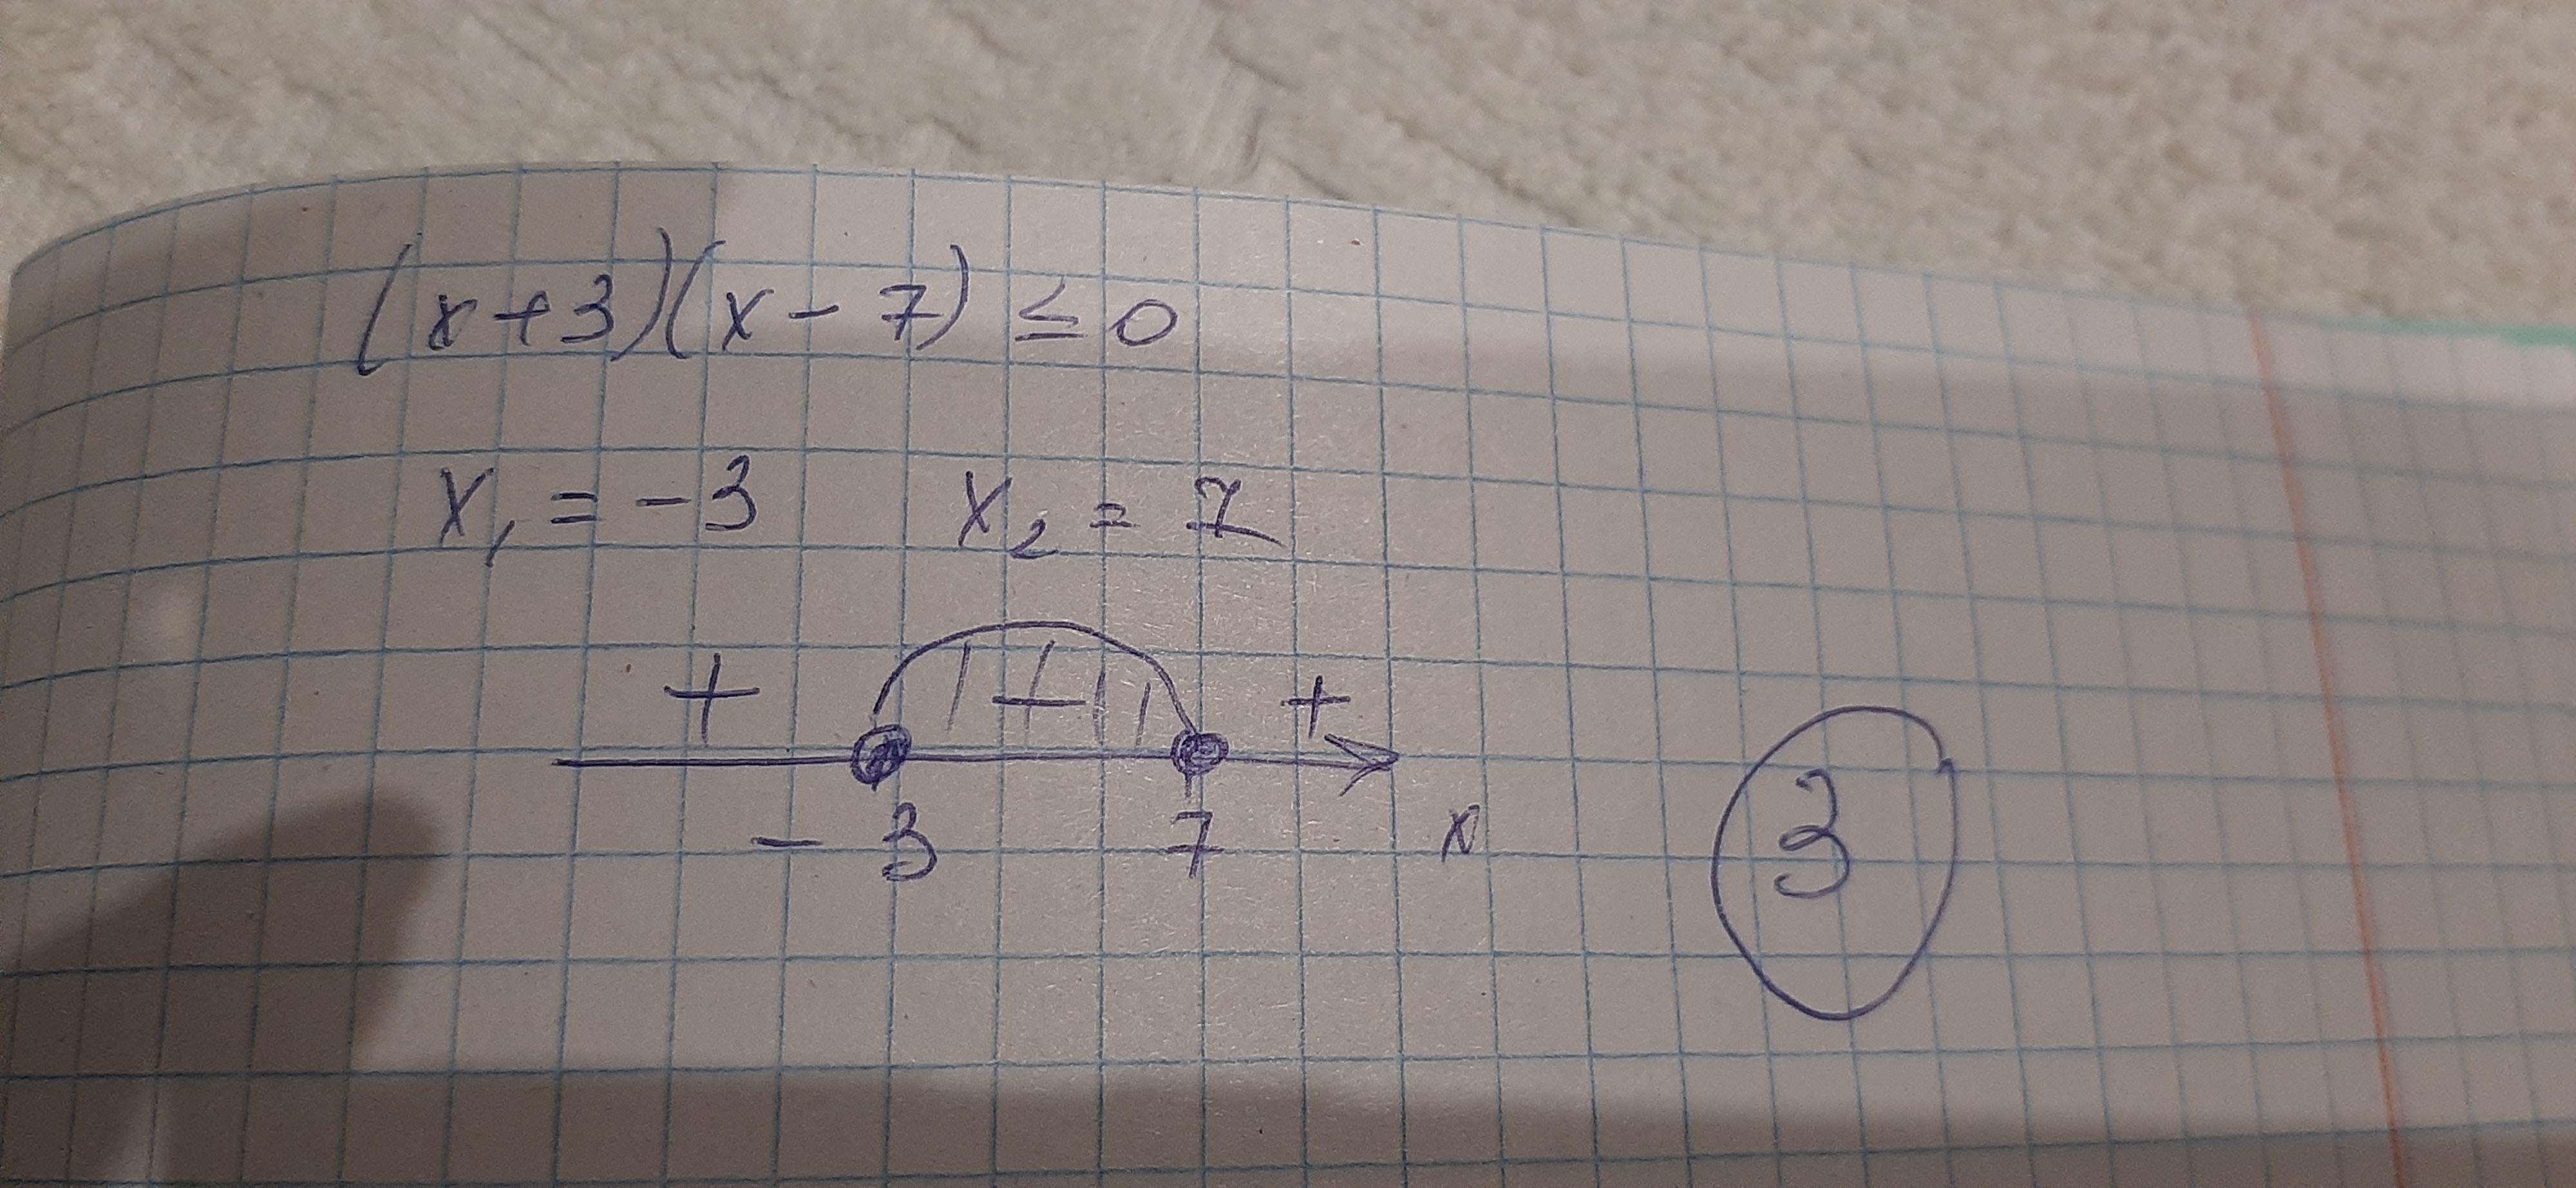 (x+3)(x-7) ≤ 0
x₁ = -3 x₂ = 7
+ - +
-3 7 x
3